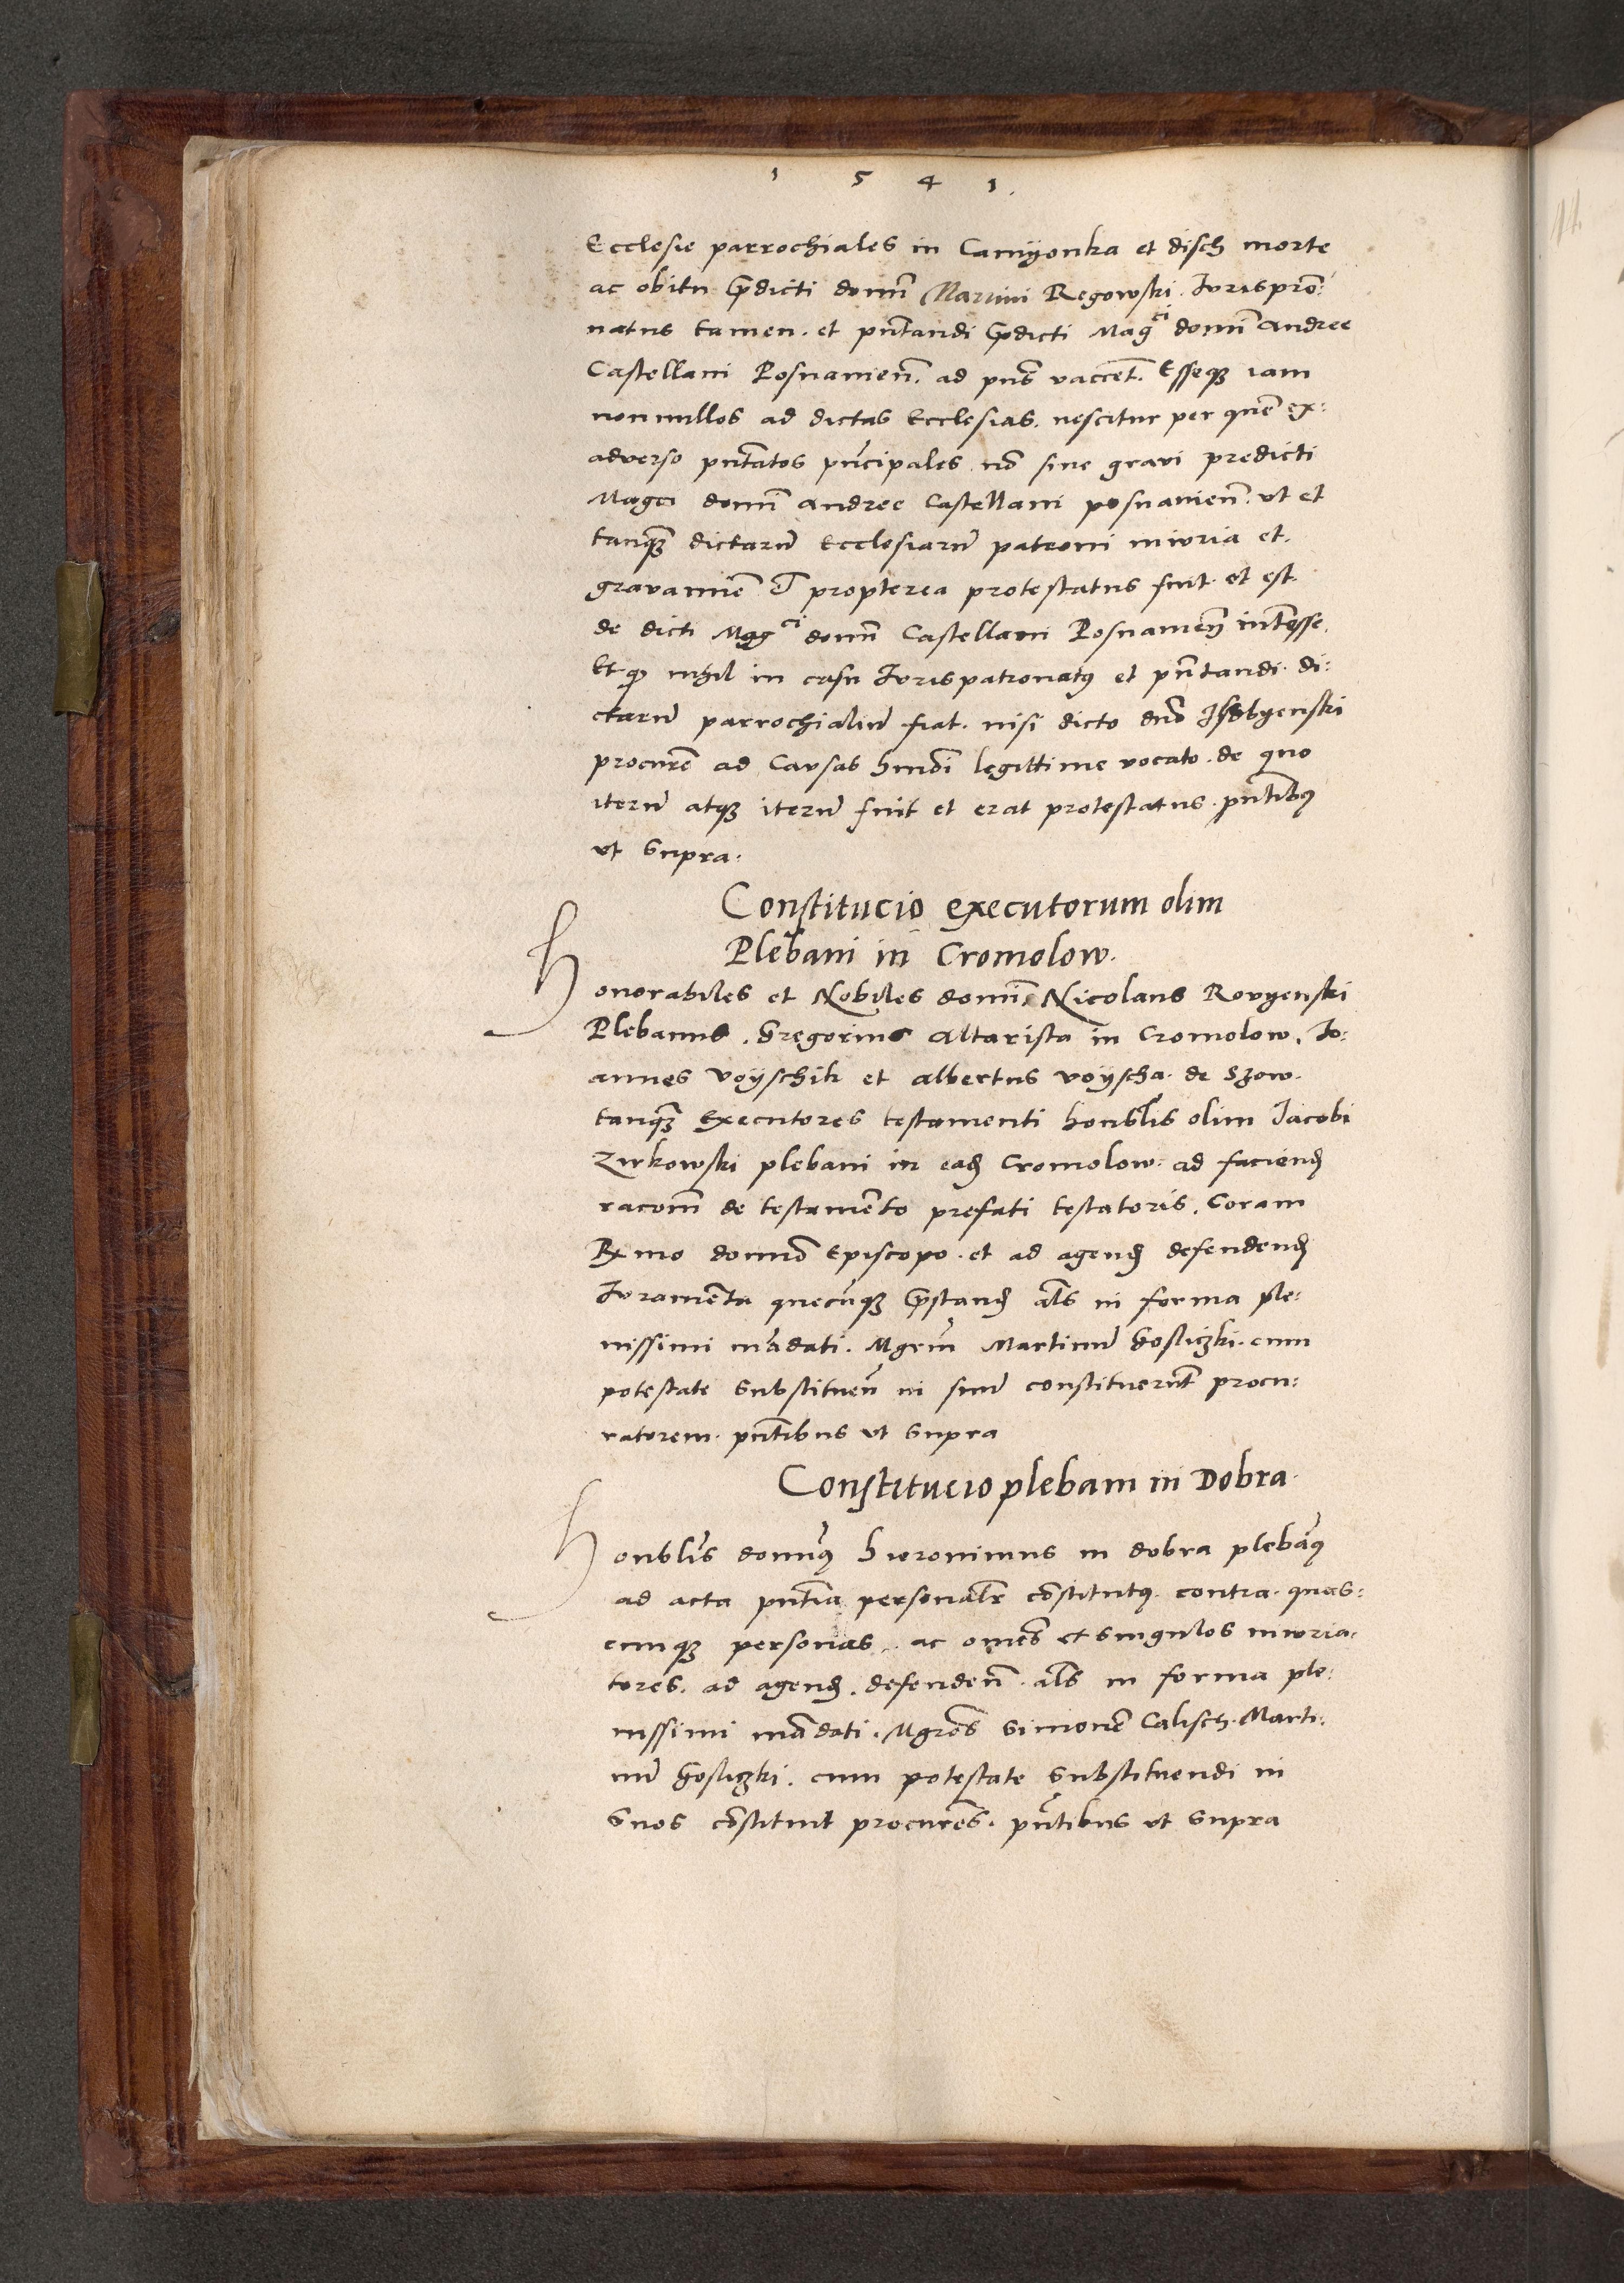 1 5 4 1.
Ecclesie parrochiales in Camyonka et disch morte
ac obitu p̄dicti domī Martini Regowski. Jurispro:
natus tamen. et pn̄tandi p̄dicti Mag^ci domī Andree
Castellani Posnanien̄. ad pn̄s vaccēt. Esseqʒ iam
nonnullos ad dictas Ecclesias. nescitur per quē ex:
adverso pn̄tatos pn̄cipales nō sine gravi predicti
Magci domī Andree Castellani posnanien̄. ut et
tanqʒ dictarū Ecclesiarū patroni iniuria et.
gravamīe propterea protestatus fuit. et est.
de dicti Mag^ci domī Castellani Posnanien̄ intēsse.
Et qʒ nihil in casu Jurispatronatꝰ et pn̄tandi. di:
ctarū parrochialiū fiat. nisi dicto dn̄o
procurē ad Causas hmōi legittime vocato. de quo
iterū atqʒ iterū fuit et erat protestatus. pn̄tibꝰ
ut Supra.
Constitucio executorum olim
Plebani in Cromolow.
Honorabiles et Nobiles domī Nicolaus Rovyenski
Plebanus. Gregorius Altarista in Cromolow. Jo:
annes Voyschik et Albertus voyscha. de Szow.
tanqʒ Executores testamenti honblis olim Jacobi
Zirkowski plebani in eadʒ Cromolow. ad faciendʒ
racom̄ de testamēto prefati testatoris. Coram
Rmo domīo Episcopo. et ad agendʒ defendendʒ
Juramēta quecūqʒ p̄standʒ als in forma ple:
nissimi mādati. Mgrm̄ Martinū Gosliczki. cum
potestate substituen̄ in suū constituerūt procu:
ratorem. pn̄tibus ut supra
Constitucio plebani in Dobra.
Honblīs domīꝰ Hieronimus in dobra plebāꝰ
ad acta pn̄tia personalr̄ cōstitutꝰ. contra. quas:
cunqʒ personas. ac omēs et singulos iniuria:
tores. ad agendʒ. defenden̄. als in forma ple:
nissimi mādati. Mgrōs Simonē Calisch. Marti:
nū Gosliczki. cum potestate Substituendi in
Suos cōstituit procurēs. pn̄tibus ut Supra